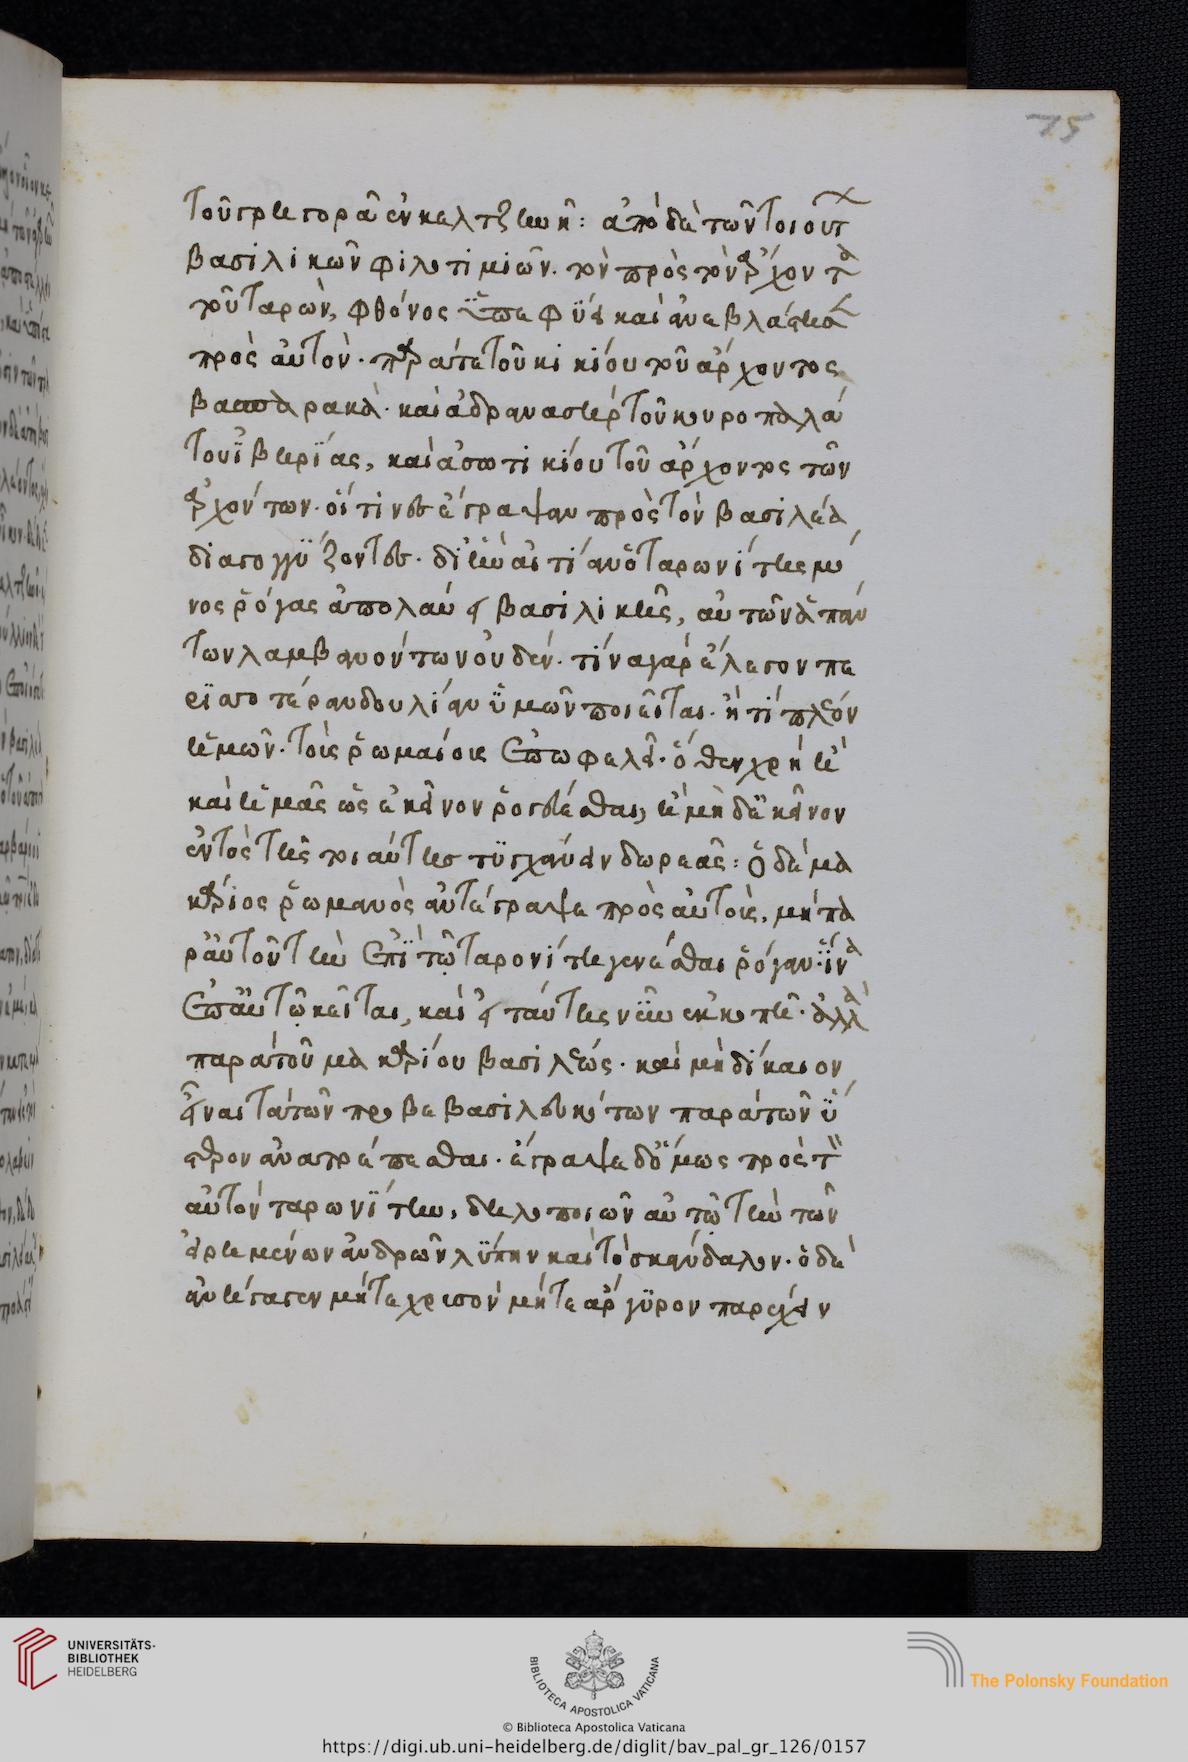 75
τοῦ γρηγορᾶ ἐν κελτζηνῆ: ἀπὸ δὲ τῶν τοιούτ
βασιλικῶν φιλοτιμιῶν. τὸν πρὸς τὸν ἄρχοντα
τοῦ ταρών, φθόνος ἐπεφύει καὶ ἀνεβλάστησεν
πρὸς αὐτὸν. παρά τε τοῦ κικίου τοῦ ἄρχοντος
βαασπαρακὰ. καὶ ἀδρανασηὲρ τοῦ κουροπαλά
του ἰβηρίας, καὶ ἀσωτικίου τοῦ ἄρχοντος τῶν
ἀρχόντων. οἵτινες ἔγραψαν πρὸς τὸν βασιλέα
διαγογγύζοντες. δι' ἣν αἰτίαν ὁ ταρωνίτης μό
νος ῥόγας ἀπολαύει βασιλικῆς, αὐτῶν ἁπάν
των λαμβανόντων οὐδέν. τίνα γὰρ ἔλεγον πε
ρισσοτέραν δουλίαν ὑμῶν ποιεῖται. ἢ τί πλέον
ἡμῶν. τοῖς ῥωμαίοις ἐπωφελεῖ. ὅθεν χρὴ ἢ
καὶ ἡμᾶς ὡς ἐκεῖνον ῥογεύεσθαι, ἢ μὴ δὲ κεῖνον
ἐντὸς τῆς τοιαύτης τυγχάνειν δωρεᾶς: ὁ δὲ μα
κάριος ῥωμανὸς ἀντέγραψε πρὸς αὐτοὺς, μὴ πα
ρ' αὐτοῦ τὴν ἐπὶ τῷ ταρονίτη γενέσθαι ῥόγαν. ἵνα
ἐπ' αὐτῷ κεῖται, καὶ ἡ ταύτης νῦν ἐκκοπὴ. ἀλλὰ
παρὰ τοῦ μακαρίου βασιλέως. καὶ μὴ δίκαιον
εἶναι τὰ τῶν προβεβασιλευκότων παρὰ τῶν ὕ
στερον ἀνατρέπεσθαι. ἔγραψε δ' ὅμως πρὸς τὸν
αὐτὸν ταρωνίτην, δηλοποιῶν αὐτῷ τὴν τῶν
εἰρημένων ἀνδρῶν λύπην καὶ τὸ σκάνδαλον. ὁ δὲ
ἀνήγαγεν μήτε χρυσὸν μήτε ἄργυρον παρέχειν
UNIVERSITÄTS-
BIBLIOTHEK
HEIDELBERG
BIBLIOTECA APOSTOLICA VATICANA
The Polonsky Foundation
© Biblioteca Apostolica Vaticana
https://digi.ub.uni-heidelberg.de/diglit/bav_pal_gr_126/0157